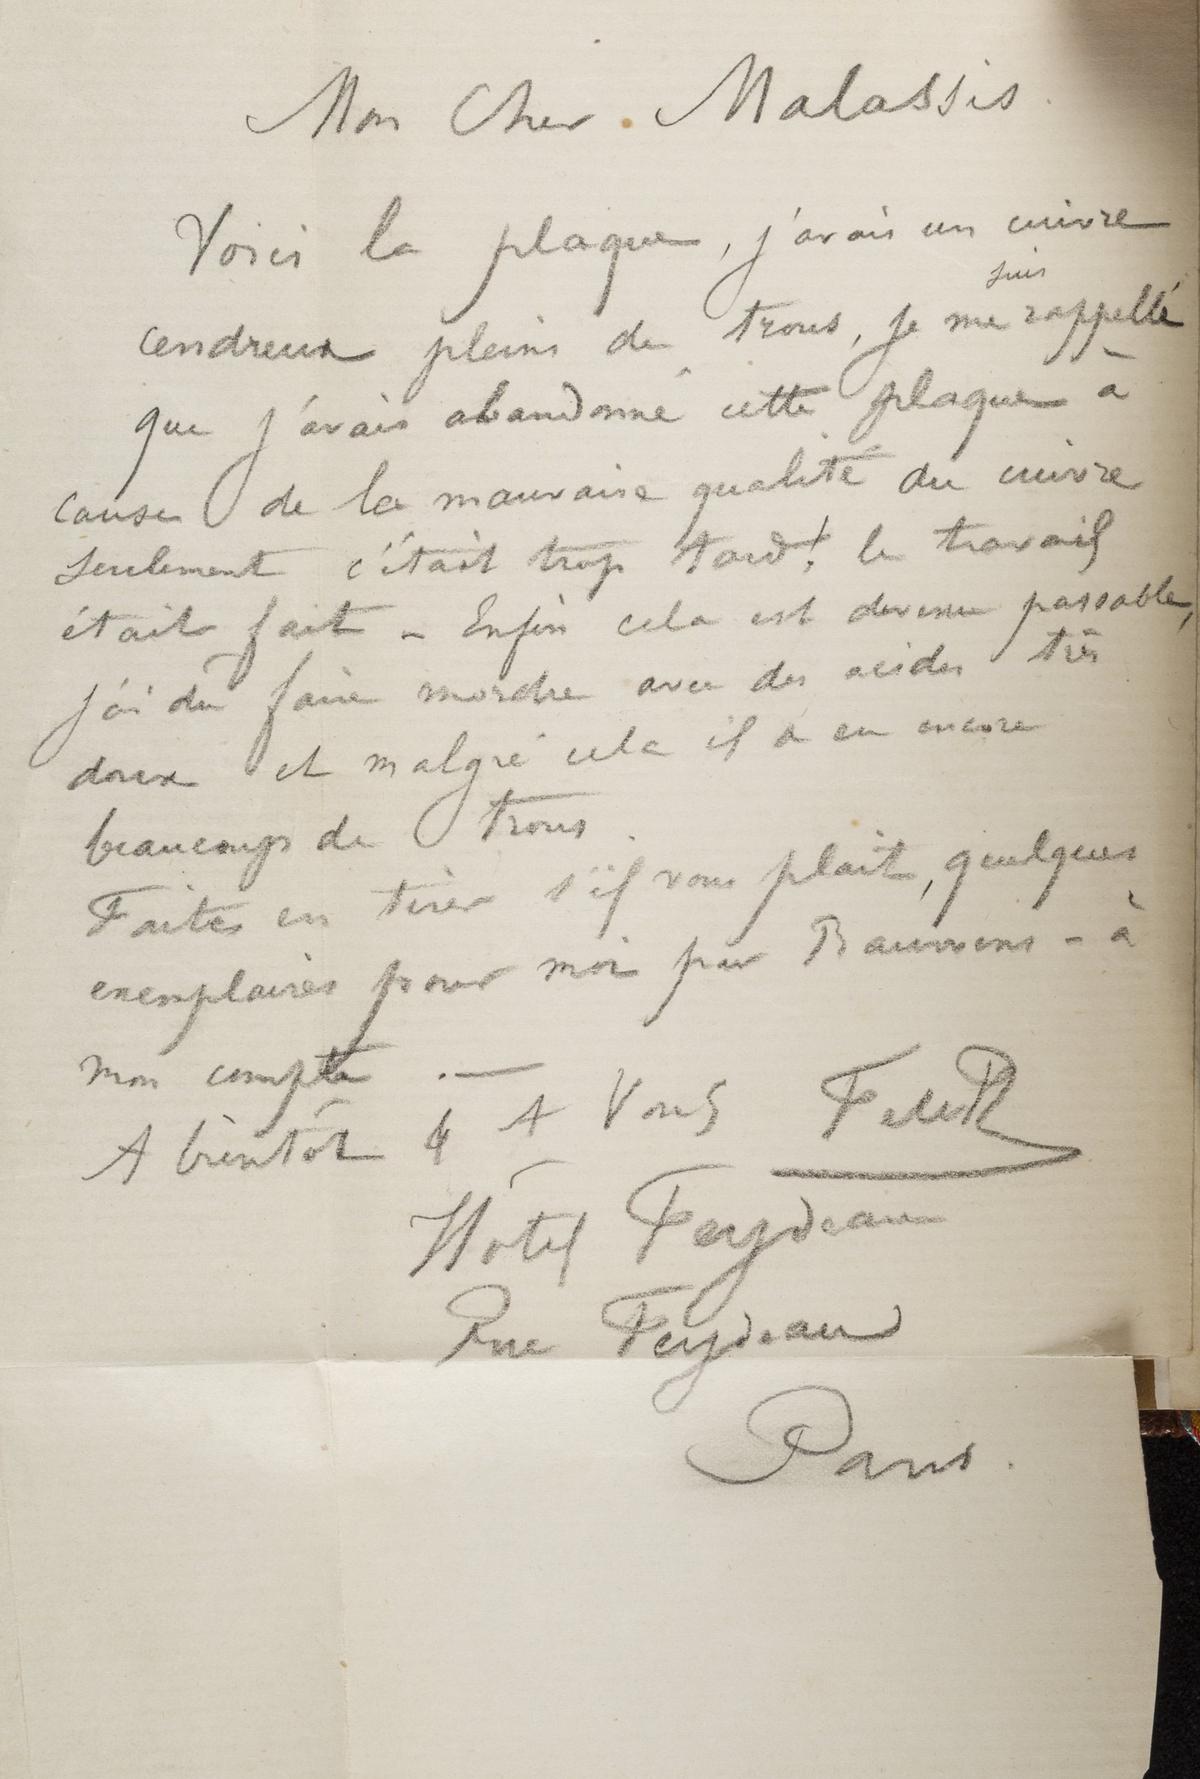 Mon Cher Malassis
Voici la plaque, j'avais un cuivre
cendreux pleins de trous, je me suis rappellé
que j'avais abandonné cette plaque à
cause de la mauvaise qualité du cuivre
seulement c'était trop tard! le travail
était fait – Enfin cela est devenu passable,
j'ai dû faire mordre avec des acides très
doux et malgré cela il a eu encore
beaucoup de trous.
Faites en tirer s'il vous plait, quelques
exemplaires pour moi par – à
mon compte. —
A bientôt & A Vous
Hôtel Feydeau
Rue Feydeau
Paris.